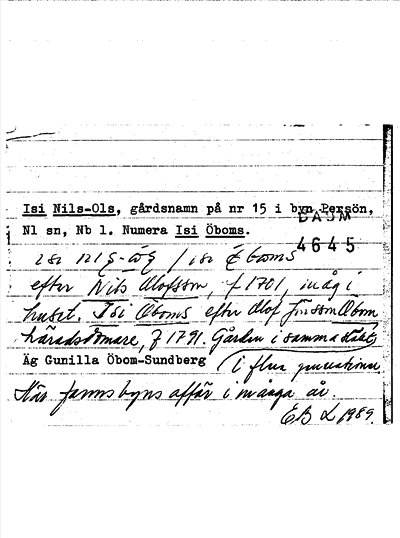 Isi Nils-Ols, gårdsnamn på nr 15 i byn Persön,
DAUM
Nl sn, Nb l. Numera Isi Öboms.
4645
efter Nils Olofsson, f 1701, måg i
huset. Isi Öboms efter Olof Jönsson Öbom
häradsdomare, f 1791. Gården i samma släkt
Äg Gunilla Öbom-Sundberg
i flera generationer
Här fanns byns affär i många år.
EB L 1989.